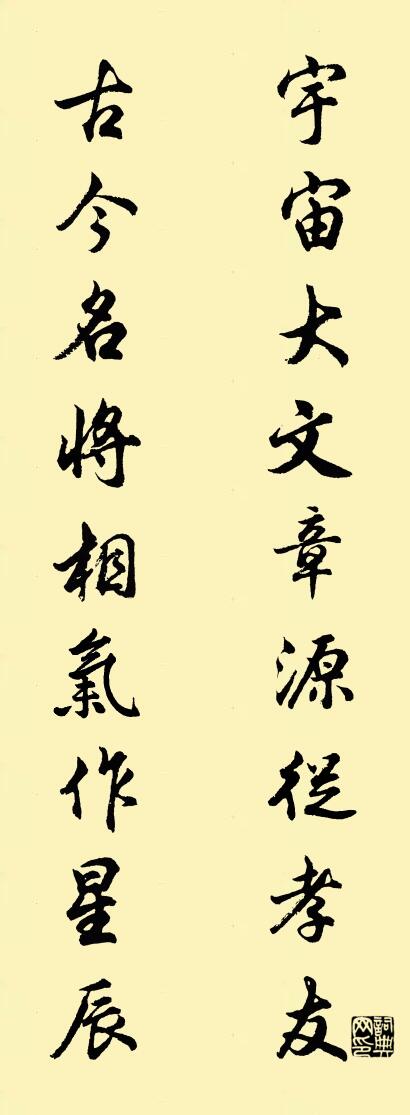 宇宙大文章源從孝友
古今名將相氣作星辰
詞典网印